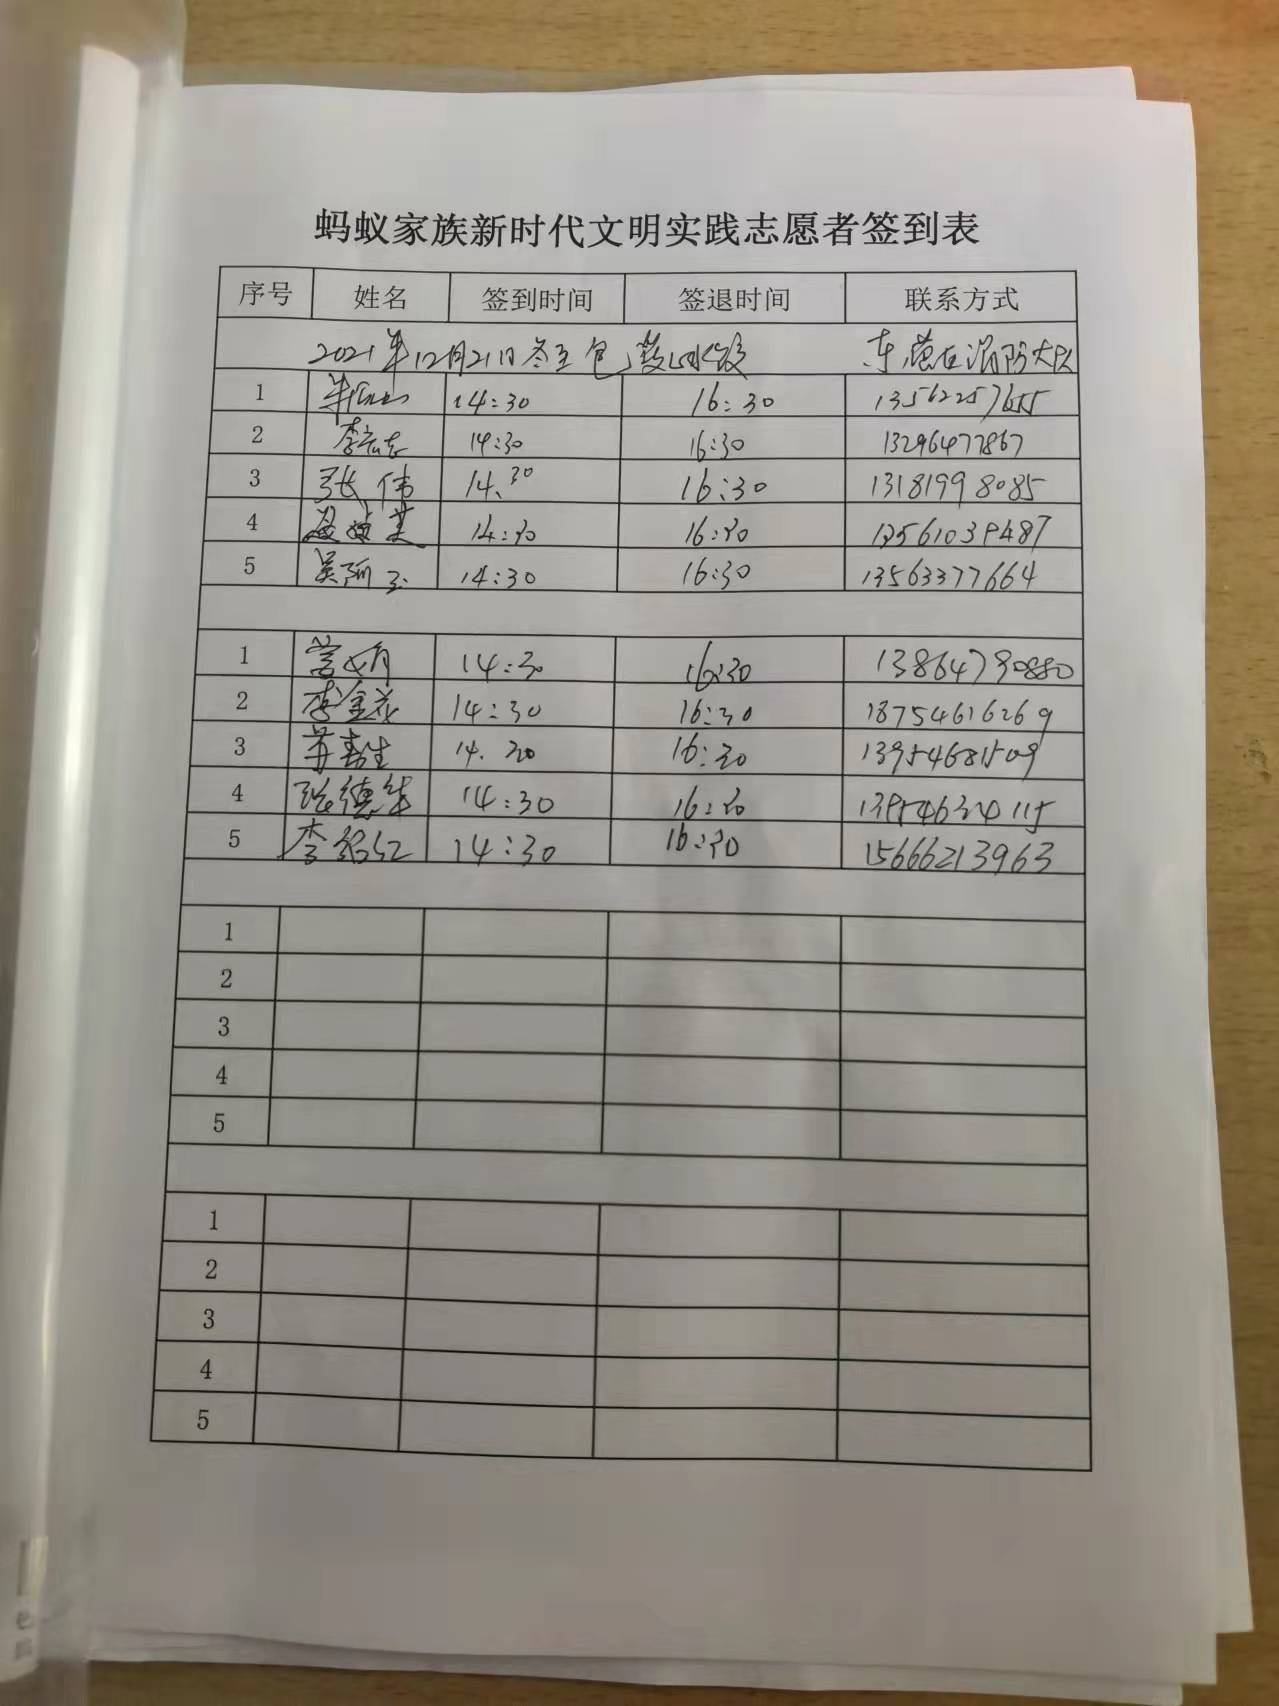 蚂蚁家族新时代文明实践志愿者签到表
序号 姓名 签到时间 签退时间 联系方式
2021年12月21日冬至包爱心水饺 东营区消防大队
1 14:30 16:30 13562257655
2 李宏志 14:30 16:30 13296477867
3 张伟 14:30 16:30 13181998085
4 14:30 16:30 13561039487
5 吴阿玉 14:30 16:30 13563377664
1 常娟 14:30 16:30 13864790880
2 李金花 14:30 16:30 18754616269
3 苏春生 14.30 16:30 13954681509
4 张德华 14:30 16:30 139546324115
5 李绍红 14:30 16:30 15666213963
1
2
3
4
5
1
2
3
4
5